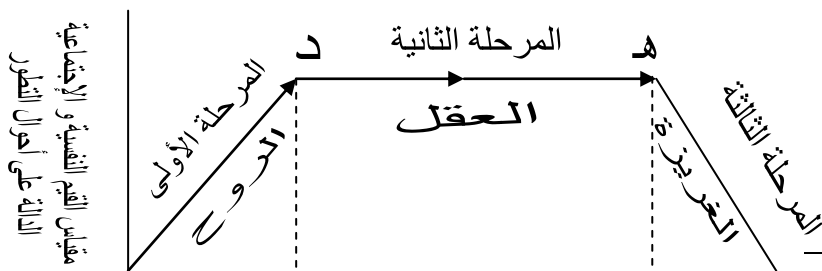 مقياس القيم النفسية و الإجتماعية
الدالة على أحوال التطور
المرحلة الأولى
الروح
د
المرحلة الثانية
العقل
هـ
المرحلة الثالثة
الغريزة